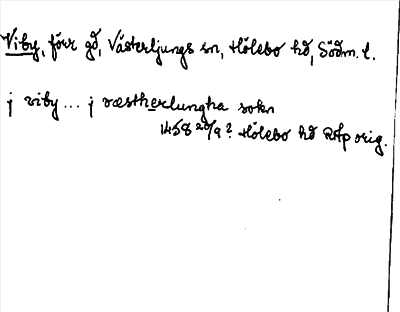 Viby, förr gd, Västerljungs sn, Hölebo hd, Södm. l.
j viby... j væstherlungha sokn
1458 20/9? Hölebo hd RAp orig.